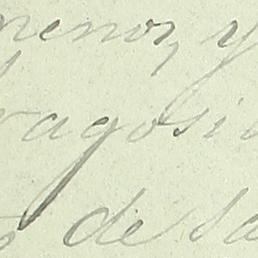 menor, y
ragosi
de sa